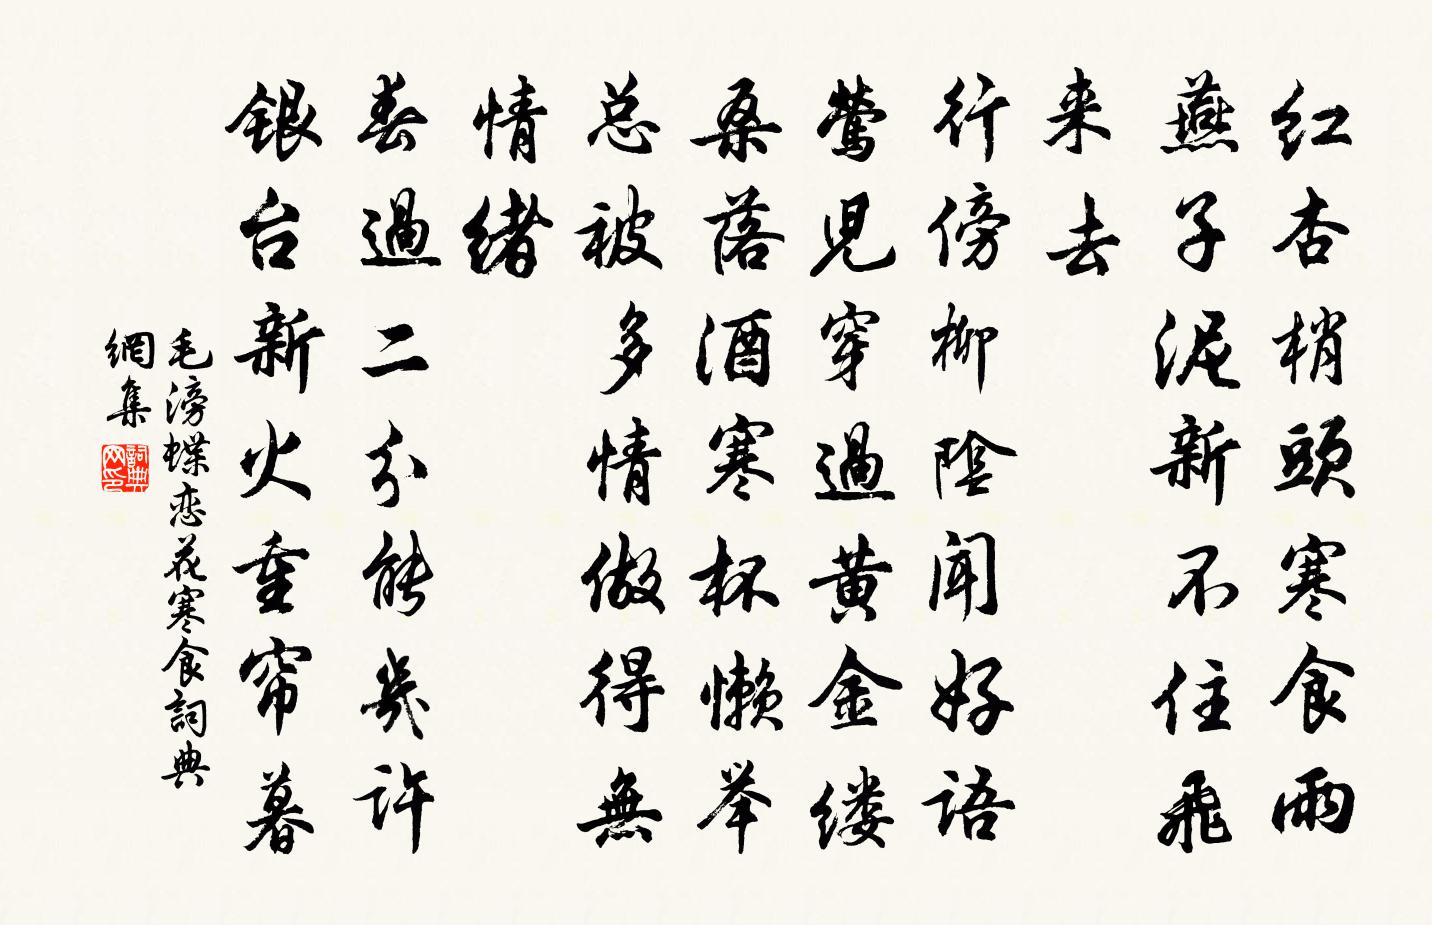 红杏梢頭寒食雨
燕子泥新不住飛
来去
行傍柳陰闻好語
莺児穿過黄金缕
桑落酒寒杯懒举
总被多情做得無
情緒
春過二分能幾許
銀台新火重帘暮
毛滂蝶恋花寒食詞典
網集
詞典
网印